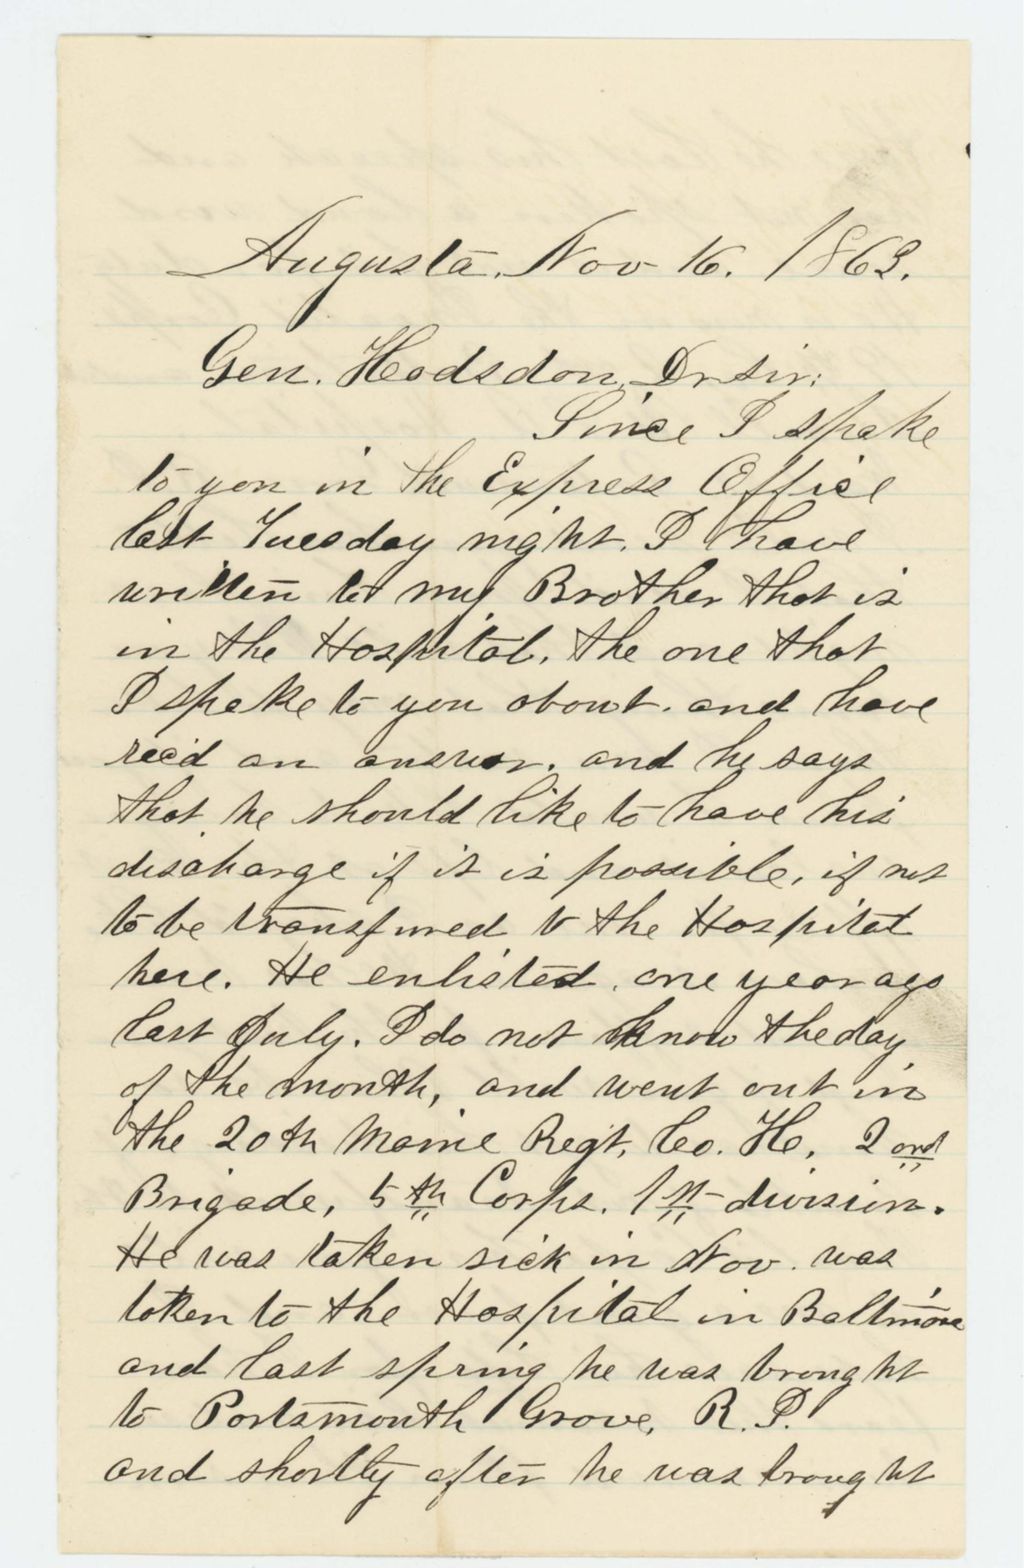 Augusta, Nov 16. 1863.
Gen. Hodsdon, Dr sir:
Since I spake
to you in the Express Office
last Tuesday night. I have
written to my Brother that is
in the Hospital, the one that
I spake to you about. and have
rec'd an answer. and he says
that he should like to have his
discharge if it is possible, if not
to be transfured to the Hospital
here. He enlisted one year ago
last July. I do not know the day
of the month, and went out in
the 20th Maine Regt, Co. H, 2ond
Brigade, 5th Corps. 1st division.
He was taken sick in Nov. was
taken to the Hospital in Baltimore
and last spring he was brought
to Portsmouth Grove, R.I.
and shortly after he was brought